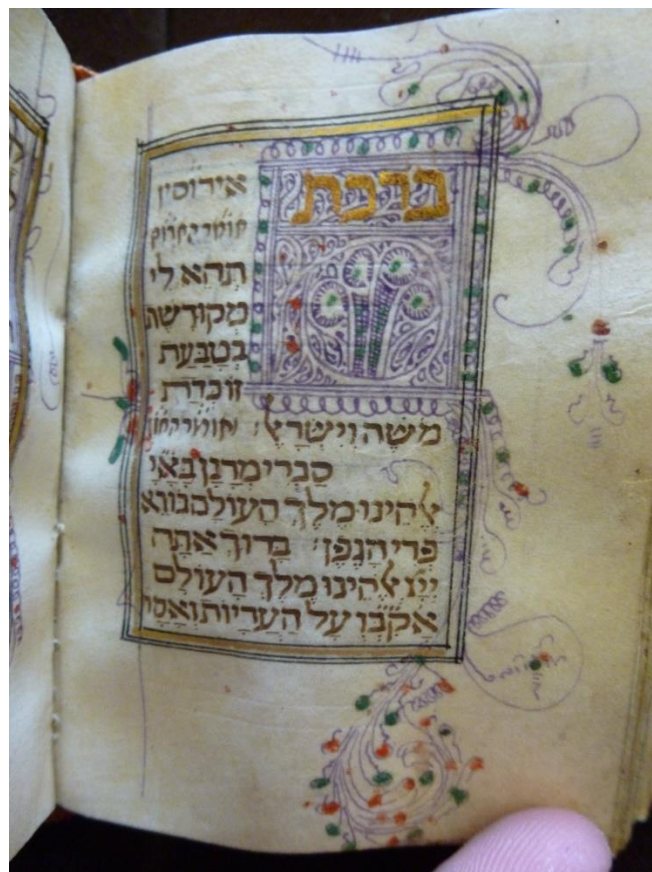 ברכת
אירוסין
תהא לי
מקודשת
בטבעת
זו כדת
משה וישראל:
סברי מרנן בא״י
אלהינו מלך העולם בורא
פרי הגפן: ברוך אתה
ייי אלהינו מלך העולם
אקב״ו על העריות ואסר